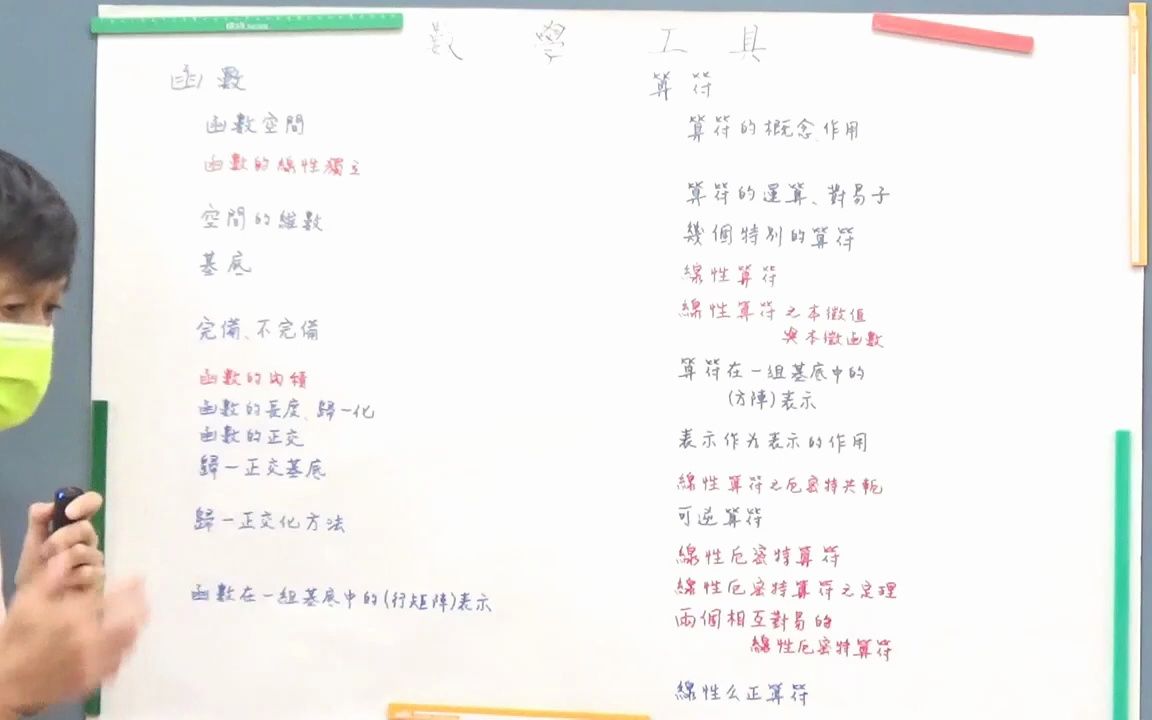 數學工具
函數
函數空間
函數的線性獨立
空間的維數
基底
完備、不完備
函數的內積
函數的長度、歸一化
函數的正交
歸一正交基底
歸一正交化方法
函數在一組基底中的(行矩陣)表示
算符
算符的概念、作用
算符的運算、對易子
幾個特別的算符
線性算符
線性算符之本徵值
與本徵函數
算符在一組基底中的
(方陣)表示
表示作为表示的作用
線性算符之厄密特共軛
可逆算符
線性厄密特算符
線性厄密特算符之定理
兩個相互對易的
線性厄密特算符
線性么正算符